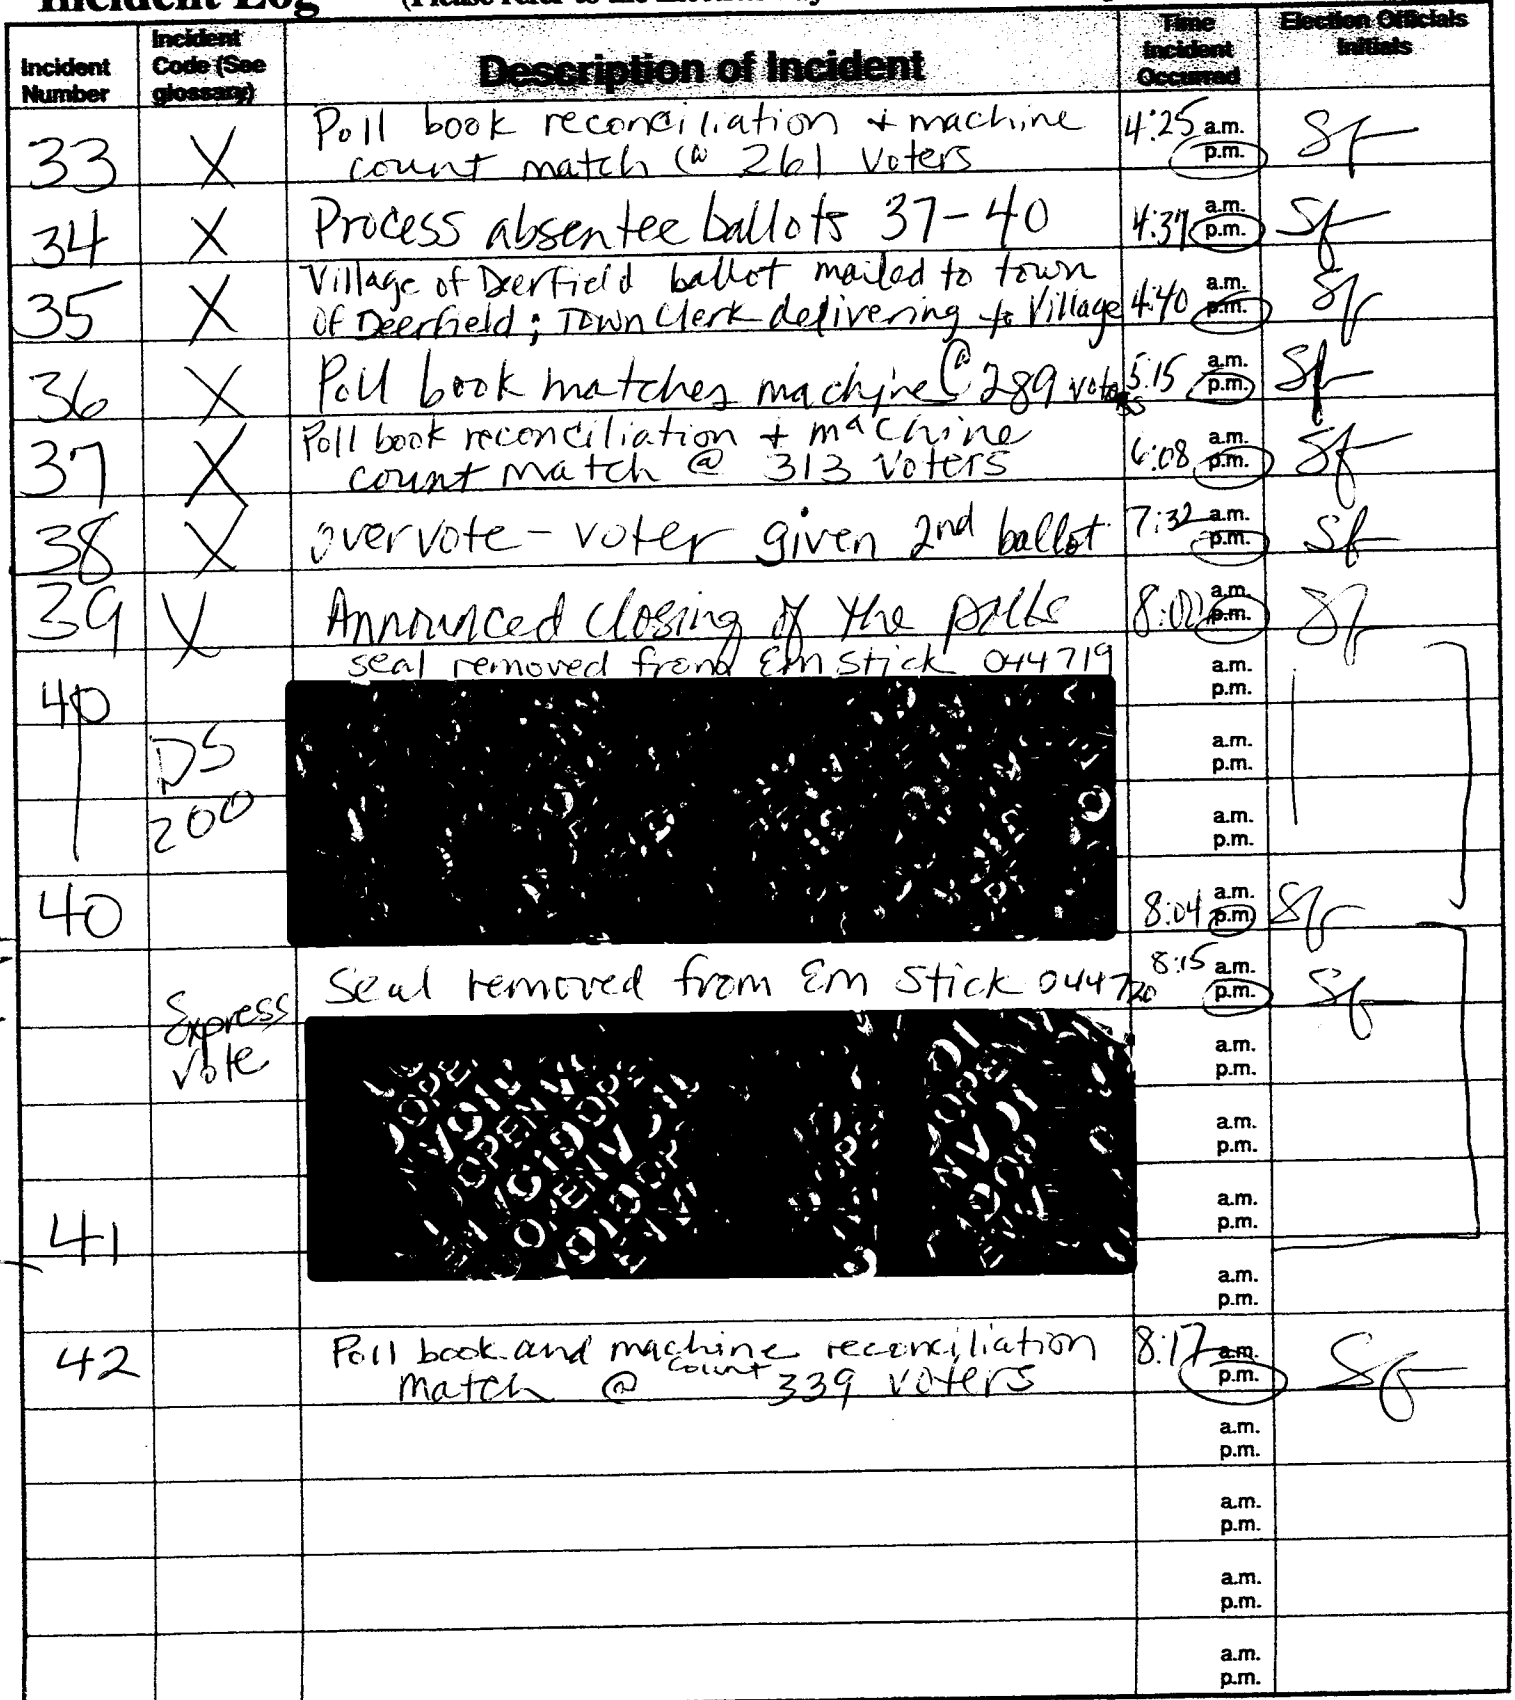 Incident Log
Incident Number
Incident Code (See glossary)
Description of Incident
Time Incident Occurred
Election Officials Initials
33 X Poll book reconciliation + machine
count match @ 261 voters 4:25 a.m. p.m. Sf
34 X Process absentee ballots 37-40 4:37 a.m. p.m. Sf
35 X Village of Deerfield ballot mailed to town
of Deerfield; Town Clerk delivering to Village 4:40 a.m. p.m. Sf
36 X Poll book matches machine @ 289 voters 5:15 a.m. p.m. Sf
37 X Poll book reconciliation + machine
count match @ 313 voters 6:08 a.m. p.m. Sf
38 X overvote - voter given 2nd ballot 7:32 a.m. p.m. Sf
39 X Announced closing of the polls a.m. p.m. Sf
40 seal removed from Em Stick 044719 a.m. p.m.
DS a.m. p.m.
200 a.m. p.m.
40 8:04 a.m. p.m. Sf
Seal removed from Em Stick 044720 8:15 a.m. p.m. Sf
Express
Vote a.m. p.m.
a.m. p.m.
41 a.m. p.m.
a.m. p.m.
42 Poll book and machine reconciliation
count
match @ 339 voters 8:17 a.m. p.m. Sf
a.m. p.m.
a.m. p.m.
a.m. p.m.
a.m. p.m.